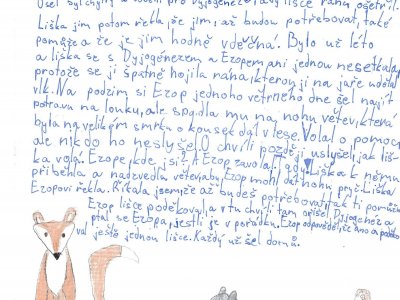 Osel byl chytrý a došel pro Dyjogenéze, aby lišce ránu ošetřil.
Liška jim potom řekla, že jim, až budou potřebovat, také
pomůže a že je jim hodně vděčná. Bylo už léto
a liška se s Dyjogenézem a Ezopem ani jednou nesetkala,
protože se jí špatně hojila ráha, kterou jí na jaře udělal
vlk. Na podzim si Ezop jednoho větrného dne šel najít
potravu na louku, ale spadla mu na nohu větev, která
byla na velikém smrku o kousek dál v lese. Volal o pomoc,
ale nikdo ho neslyšel. O chvíli později uslyšel, jak liš-
ka volá: Ezope, kde jsi? A Ezop zavolal: Tady! Liška k němu
přiběhla a nadzvedla větev, aby Ezop mohl dát nohu pryč. Liška
Ezopovi řekla: Říkala jsem, že až budeš potřebovat, tak ti pomůžu.
Ezop lišce poděkoval a v tu chvíli tam přišel Dyjogenéz a
ptal se Ezopa, jestli je v pořádku. Ezop odpověděl, že ano a poděko-
val ještě jednou lišce. Každý už šel domů.